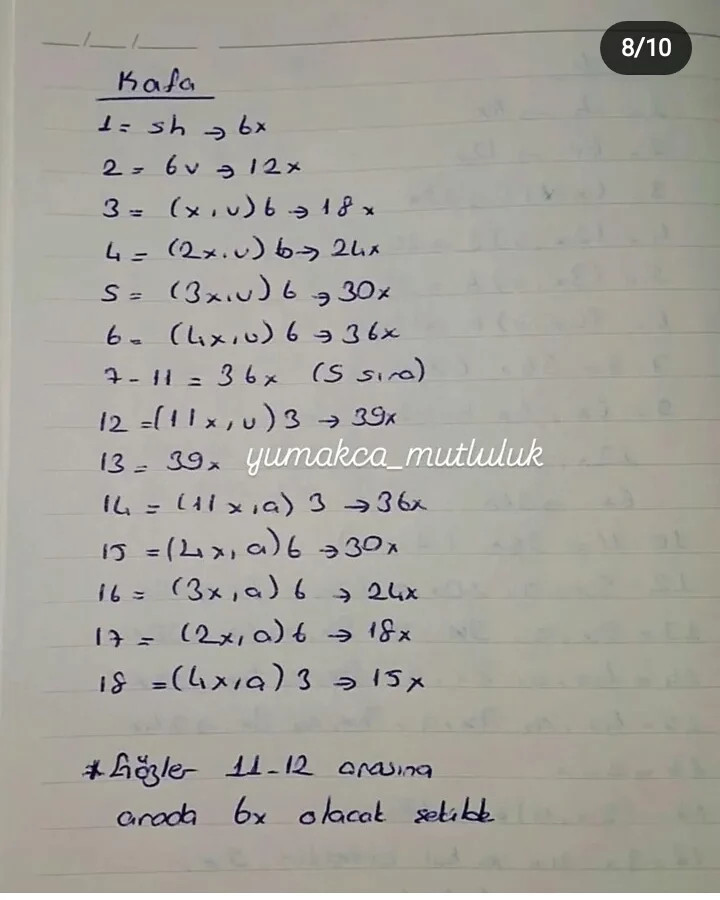 8/10
__/__/__
Kafa
1 = sh → 6x
2 = 6v → 12x
3 = (x, v) 6 → 18x
4 = (2x, v) 6 → 24x
5 = (3x, v) 6 → 30x
6 = (4x, v) 6 → 36x
7-11 = 36x (5 sıra)
12 = (11x, v) 3 → 39x
13 = 39x yumakca_mutluluk
14 = (11x, a) 3 → 36x
15 = (4x, a) 6 → 30x
16 = (3x, a) 6 → 24x
17 = (2x, a) 6 → 18x
18 = (4x, a) 3 → 15x
* Gözler 11-12 arasına
arada 6x olacak şekilde